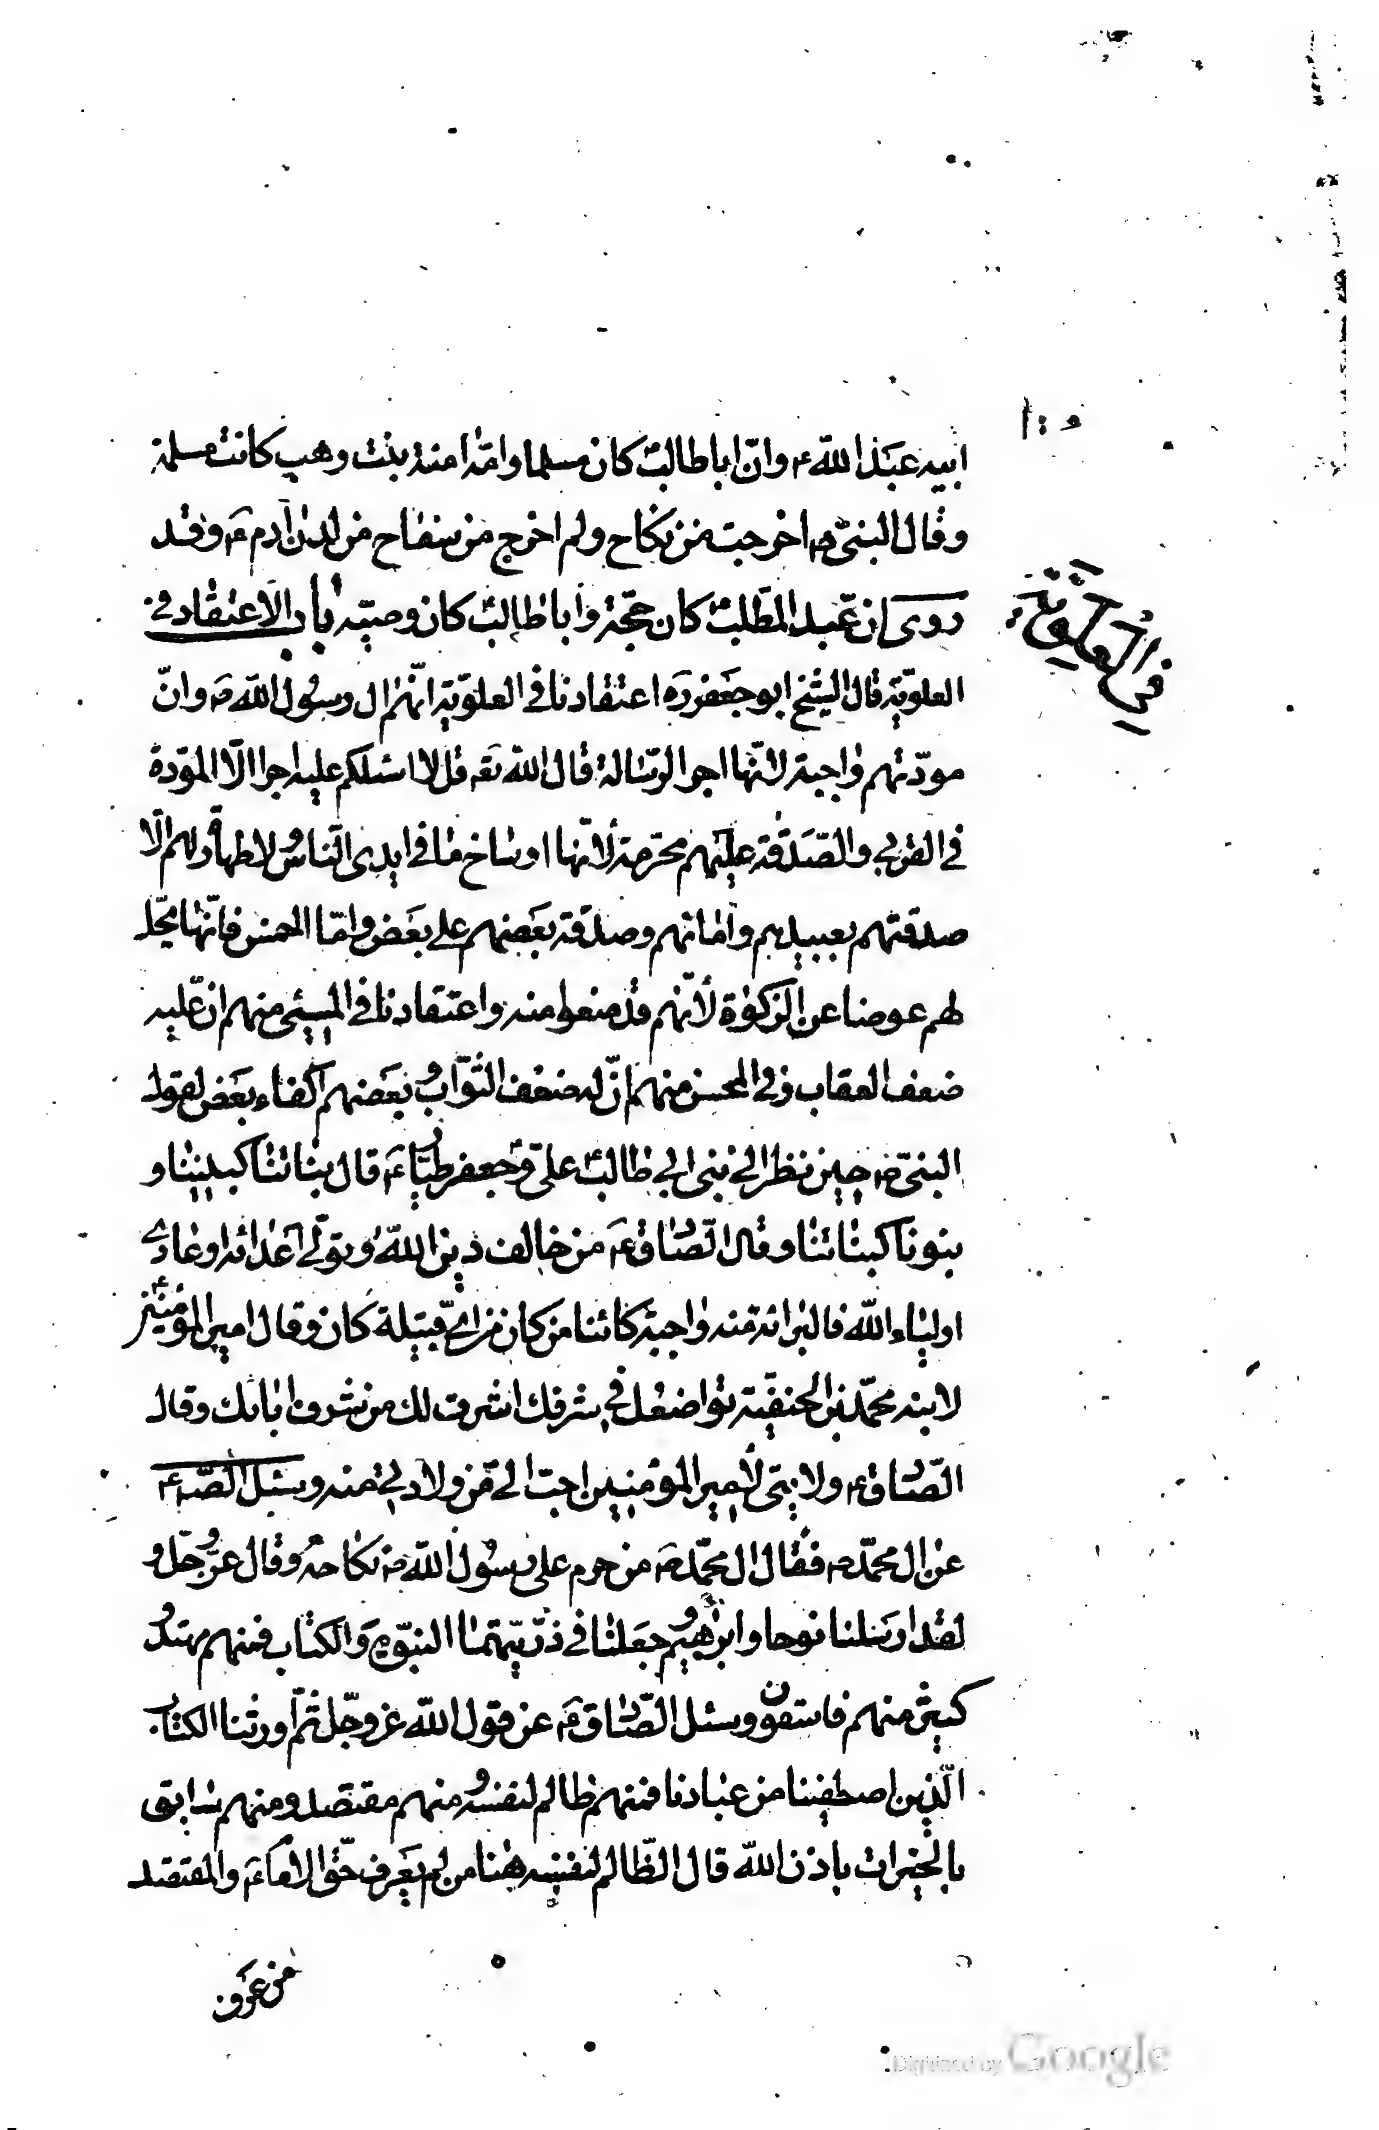 ابيه عبد الله ع وانّ ابا طالب كان مسلما وامّه امنة بنت وهب كانت مسلمة
وقال النبىّ ص اخرجت من نكاح ولم اخرج من سفاح من لدن آدم ع وقد
روى ان عبد المطّلب كان حجّة وابا طالب كان وصيّه باب الاعتقاد في
في العلويّة
العلويّة قال الشيخ ابو جعفر ره اعتقادنا في العلويّة انّهم ال رسول الله ص وانّ
مودّتهم واجبة لانّها اجر الرّسالة قال الله تعه قل لا اسئلكم عليه اجرا الّا المودة
في القربى والصّدقة عليهم محرّمة لأنّها اوساخ ما في ايدى النّاس وطهارة لهم الّا
صدقتهم بعبيدهم وامائهم وصدقة بعضهم على بعض وامّا الخمس فانّها تحلّ
لهم عوضا عن الزكوة لأنّهم قد منعوا منه واعتقادنا في المسيئ منهم انّ عليه
ضعف العقاب وفي المحسن منهم انّ له ضعف الثّواب وبعضهم اكفاء بعض لقول
النبىّ ص حين نظر الى بنى ابي طالب علىّ وجعفر طيّار ع قال بناتنا كبنينا و
بنونا كبناتنا وقال الصّادق ع من خالف دين الله وتولّى اعدائه او عادى
اولياء الله فالبرائة منه واجبة كائنا من كان من اىّ قبيلة كان وقال امير المؤمنين ع
لابنه محمّد بن الحنفيّة تواضعك في شرفك اشرف لك من شرف ابائك وقال
الصّادق ع ولايتى لأمير المؤمنين احبّ الىّ من ولادتى منه وسئل الصّادق ع
عن ال محمّد ص فقال ال محمّد ص من حرم على رسول الله ص نكاحه وقال عزّ وجلّ و
لقد ارسلنا نوحا وابرهيم وجعلنا في ذرّيّتهما النبوّة والكتاب فمنهم مهتد و
كثير منهم فاسقون وسئل الصّادق ع عن قول الله عز وجلّ ثمّ اورثنا الكتاب
الّذين اصطفينا من عبادنا فمنهم ظالم لنفسه ومنهم مقتصد ومنهم سابق
بالخيرات باذن الله قال الظّالم لنفسه هنا من لم يعرف حقّ الامام ع والمقتصد
من عرف
Digitized by Google